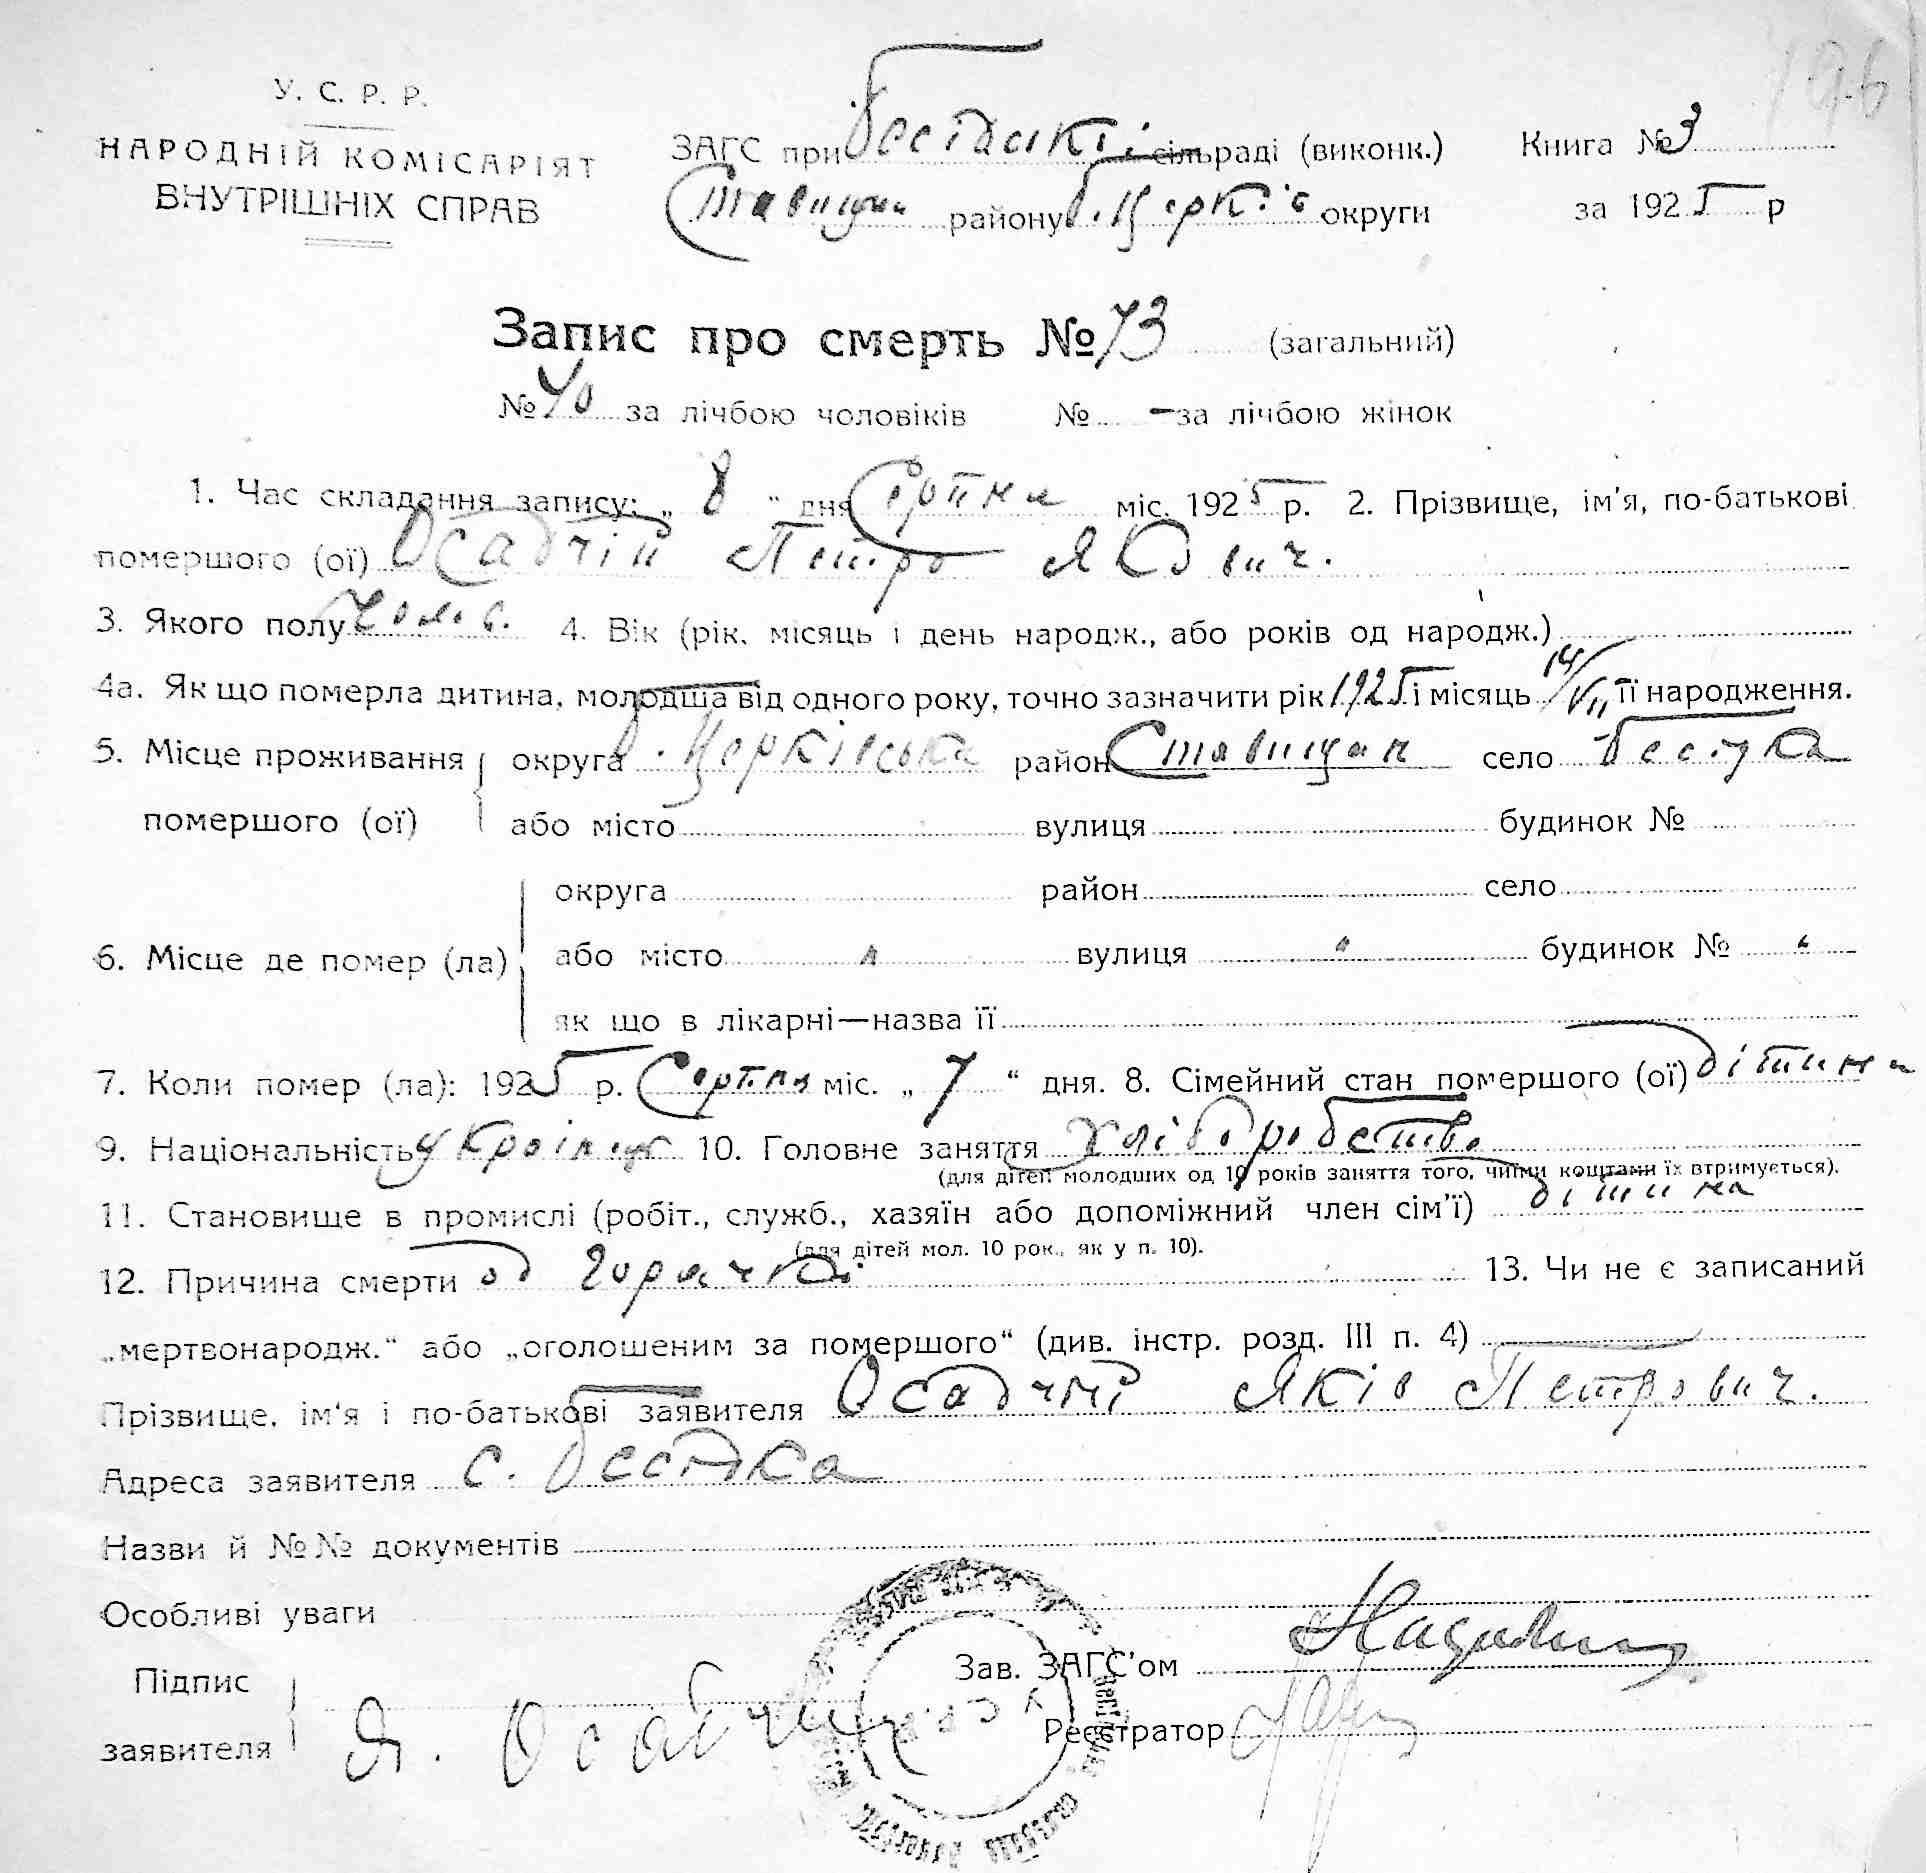 У. С. Р. Р.
НАРОДНІЙ КОМІСАРІЯТ
ВНУТРІШНІХ СПРАВ
ЗАГС при Бесідській сільраді (виконк.)
Ставищан району Б. Церків округи
Книга № 3
за 1925 р
Запис про смерть № 73 (загальний)
№ 40 за лічбою чоловіків № – за лічбою жінок
1. Час складання запису: „ 8 “ дня Серпня міс. 1925 р. 2. Прізвище, ім'я, по-батькові
помершого (ої) Осадчій Петро Якович.
3. Якого полу Чолов. 4. Вік (рік, місяць і день народж., або років од народж.)
4а. Як що померла дитина, молодша від одного року, точно зазначити рік 1925 і місяць 14/VII її народження.
5. Місце проживання помершого (ої) округа Б. Церківська район Ставищан село Бесідка
або місто вулиця будинок №
6. Місце де помер (ла) округа район село
або місто " вулиця " будинок № "
як що в лікарні—назва її
7. Коли помер (ла): 1925 р. Серпня міс. „ 7 “ дня. 8. Сімейний стан помершого (ої) дітина
9. Національність українец 10. Головне заняття хліборобство
(для дітей молодших од 10 років заняття того, чиїми коштами їх втримується).
11. Становище в промислі (робіт., служб., хазяїн або допоміжний член сім'ї) дітина
(для дітей мол. 10 рок., як у п. 10).
12. Причина смерти од горячкої 13. Чи не є записаний
„мертвонародж.“ або „оголошеним за помершого“ (див. інстр. розд. III п. 4)
Прізвище, ім'я і по-батькові заявителя Осадчий Яків Петрович.
Адреса заявителя с. Бесідка
Назви й №№ документів
Особливі уваги
Підпис заявителя Я. Осадчий
Зав. ЗАГС'ом
Реєстратор